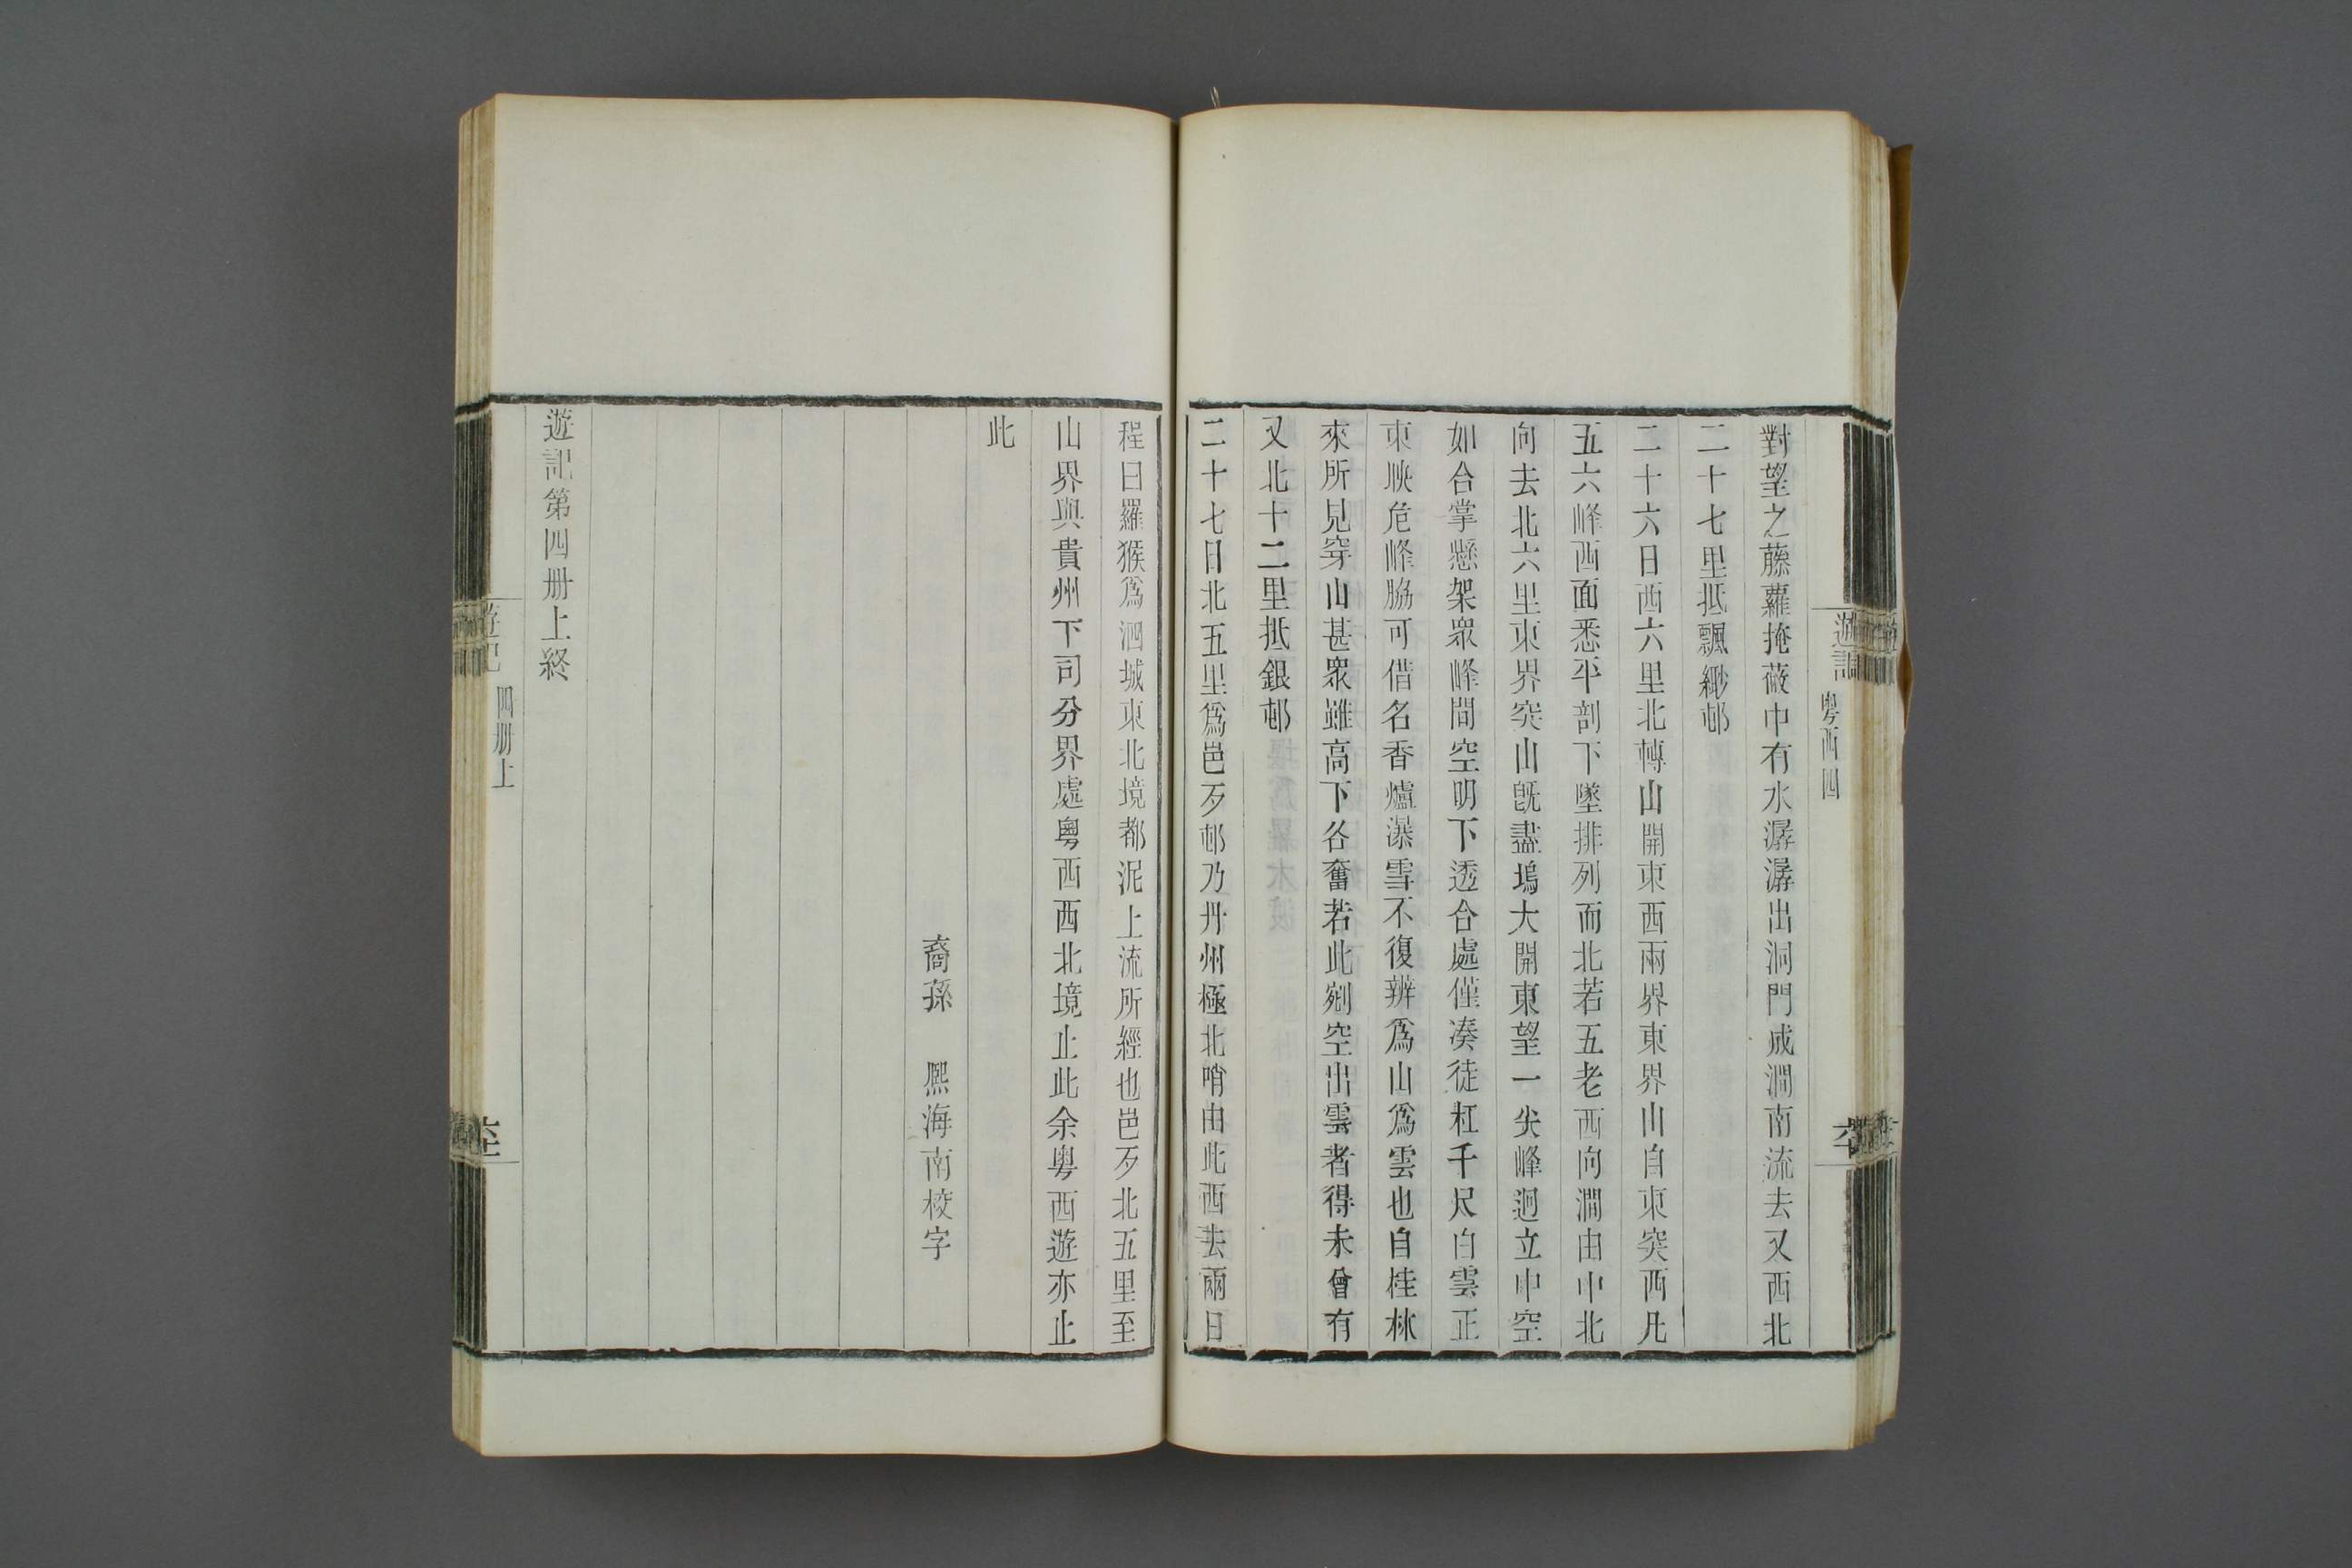 遊記
粵西四
對望之藤蘿掩薇中有水潺潺出洞門成澗南流去又西北
二十七里抵飄緲邨
二十六日西六里北轉山開東西兩界東界山自東突西凡
五六峰西面悉平剖下墜排列而北若五老西向澗由中北
向去北六里東界突山旣盡塢大開東望一尖峰迥立中空
如合掌懸架眾峰間空明下透合處僅湊徒杠千尺白雲正
東映危峰脇可借名香爐瀑雪不復辨為山為雲也自桂林
來所見穿山甚眾雖高下各奮若此剜空出雲者得未曾有
又北十二里抵銀邨
二十七日北五里為邑歹邨乃丹州極北哨由此西去兩日
程曰羅猴為泗城東北境都泥上流所經也邑歹北五里至
山界與貴州下司分界處粵西西北境止此余粵西遊亦止
此
裔孫 熙海南校字
遊記第四册上終
遊記
四册上